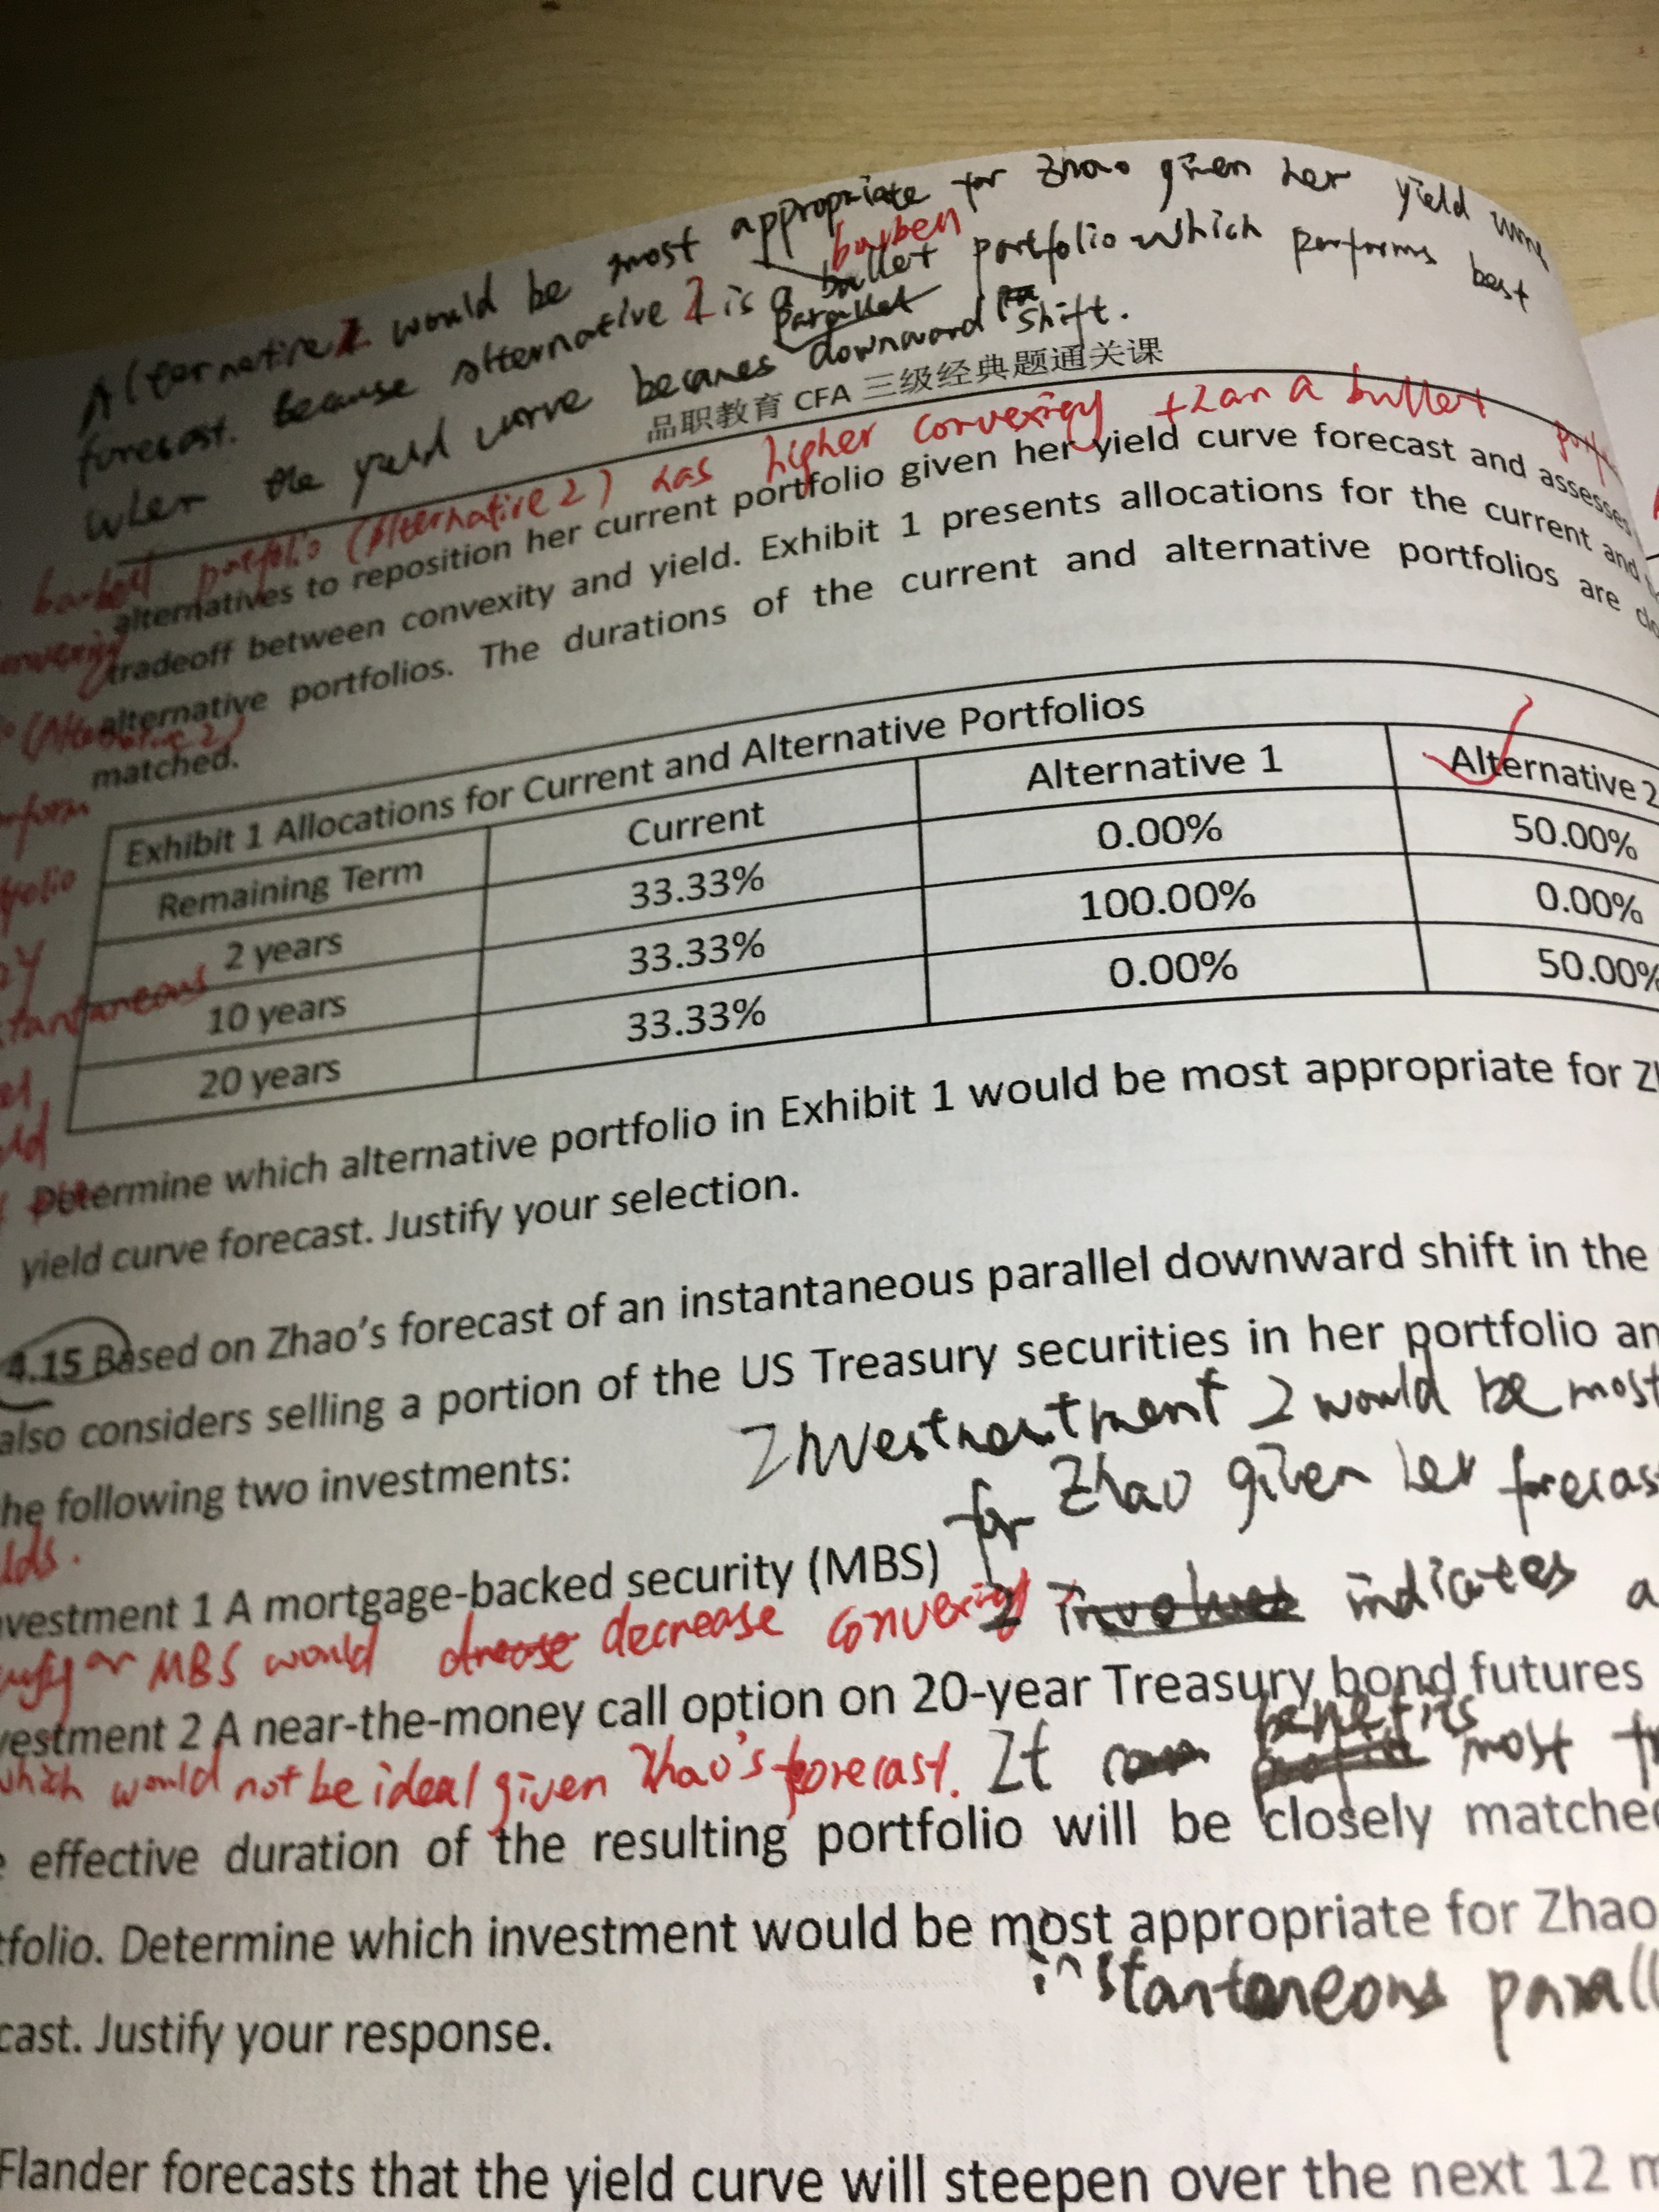 Alternative 2 would be most appropriate for Zhao given her yield
forecast. Because alternative 2 is a bullet barbell portfolio which performs best
when the yield curve becomes parallel downward shift.
品职教育 CFA 三级经典题通关课
barbell portfolio (Alternative 2) has higher convexity than a bullet
alternatives to reposition her current portfolio given her yield curve forecast and assesses
tradeoff between convexity and yield. Exhibit 1 presents allocations for the current and
alternative portfolios. The durations of the current and alternative portfolios are clo
matched.
Exhibit 1 Allocations for Current and Alternative Portfolios
Remaining Term Current Alternative 1 Alternative 2
2 years 33.33% 0.00% 50.00%
10 years 33.33% 100.00% 0.00%
20 years 33.33% 0.00% 50.00%
Determine which alternative portfolio in Exhibit 1 would be most appropriate for Zh
yield curve forecast. Justify your selection.
4.15 Based on Zhao's forecast of an instantaneous parallel downward shift in the
also considers selling a portion of the US Treasury securities in her portfolio an
he following two investments:
Investment 2 would be most
for Zhao given her forecas
lds.
nvestment 1 A mortgage-backed security (MBS)
2 indicates a
MBS would decrease convexity
vestment 2 A near-the-money call option on 20-year Treasury bond futures
which would not be ideal given Zhao's forecast.
It benefits most fr
e effective duration of the resulting portfolio will be closely matched
tfolio. Determine which investment would be most appropriate for Zhao
instantaneous parall
cast. Justify your response.
Flander forecasts that the yield curve will steepen over the next 12 m